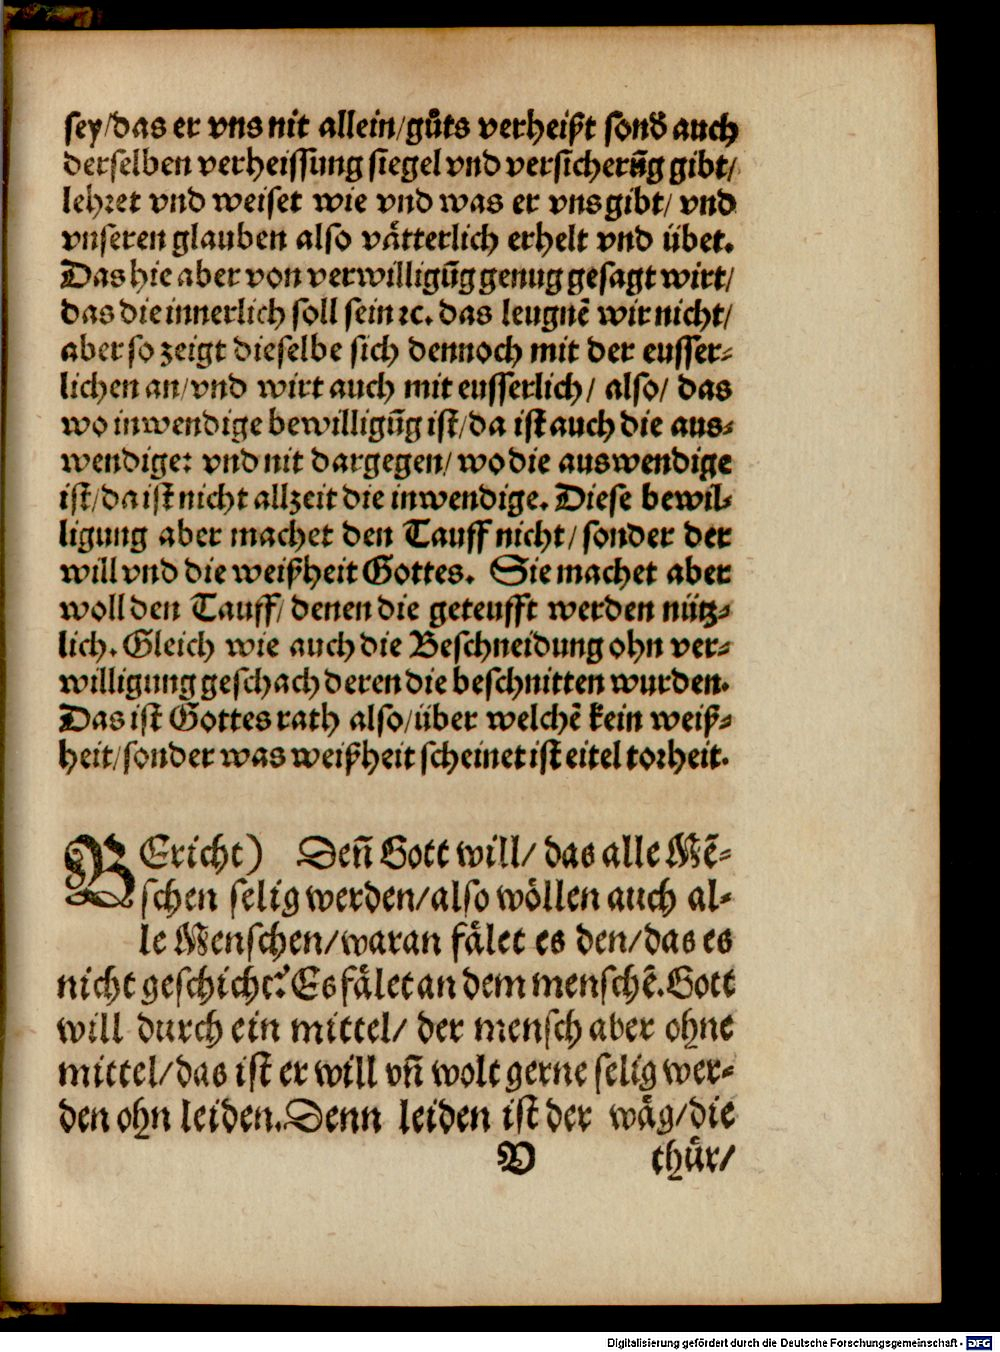 sey/das er vns nit allein/gůts verheißt sond̛ auch
derselben verheissung siegel vnd versicherũg gibt/
lehret vnd weiset wie vnd was er vns gibt/ vnd
vnseren glauben also vätterlich erhelt vnd übet.
Das hie aber von verwilligũg genug gesagt wirt/
das die innerlich soll sein ꝛc. das leugnẽ wir nicht/
aber so zeigt dieselbe sich dennoch mit der eusser⸗
lichen an/vnd wirt auch mit eusserlich/ also/ das
wo inwendige bewilligũg ist/da ist auch die aus⸗
wendige: vnd nit dargegen/ wo die auswendige
ist/da ist nicht allzeit die inwendige. Diese bewil⸗
ligung aber machet den Tauff nicht/ sonder der
will vnd die weißheit Gottes. Sie machet aber
woll den Tauff/ denen die geteufft werden nütz⸗
lich. Gleich wie auch die Beschneidung ohn ver⸗
willigung geschach deren die beschnitten wurden.
Das ist Gottes rath also/über welchẽ kein weiß⸗
heit/sonder was weißheit scheinet ist eitel torheit.
BEricht) Deñ Gott will/ das alle Mẽ⸗
schen selig werden/also wöllen auch al⸗
le Menschen/waran fälet es den/das es
nicht geschicht? Es fälet an dem menschẽ. Gott
will durch ein mittel/ der mensch aber ohne
mittel/das ist er will vñ wolt gerne selig wer⸗
den ohn leiden. Denn leiden ist der wäg/die
V thür/
Digitalisierung gefördert durch die Deutsche Forschungsgemeinschaft - DFG